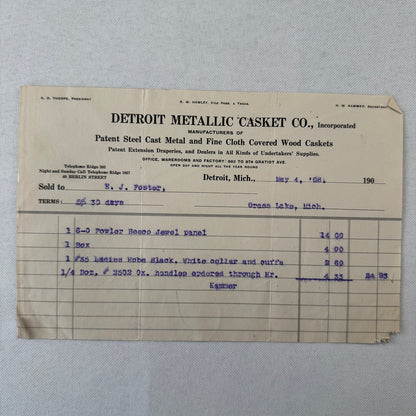 G. G. THORPE, PRESIDENT S. W. HAWLEY, VICE PRES. & TREAS. H. W. KAMMER, SECRETARY
DETROIT METALLIC CASKET CO., Incorporated
MANUFACTURERS OF
Patent Steel Cast Metal and Fine Cloth Covered Wood Caskets
Patent Extension Draperies, and Dealers in All Kinds of Undertakers' Supplies.
OFFICE, WAREROOMS AND FACTORY: TO GRATIOT AVE.
OPEN DAY AND NIGHT ALL THE YEAR ROUND
Telephone Ridge
Night and Sunday Call Telephone Ridge
BERLIN STREET
Detroit, Mich., May 4, '08. 190
Sold to E. J. Foster,
TERMS: 30 days Grass Lake, Mich.
1 6-0 Fowler Bosco Jewel panel 14 00
1 Box 4 00
1 #35 Ladies Robe Black, White collar and cuffs 2 60
1/4 Doz, # 2502 Ox. handles ordered through Mr. 4 33 24 93
Kammer